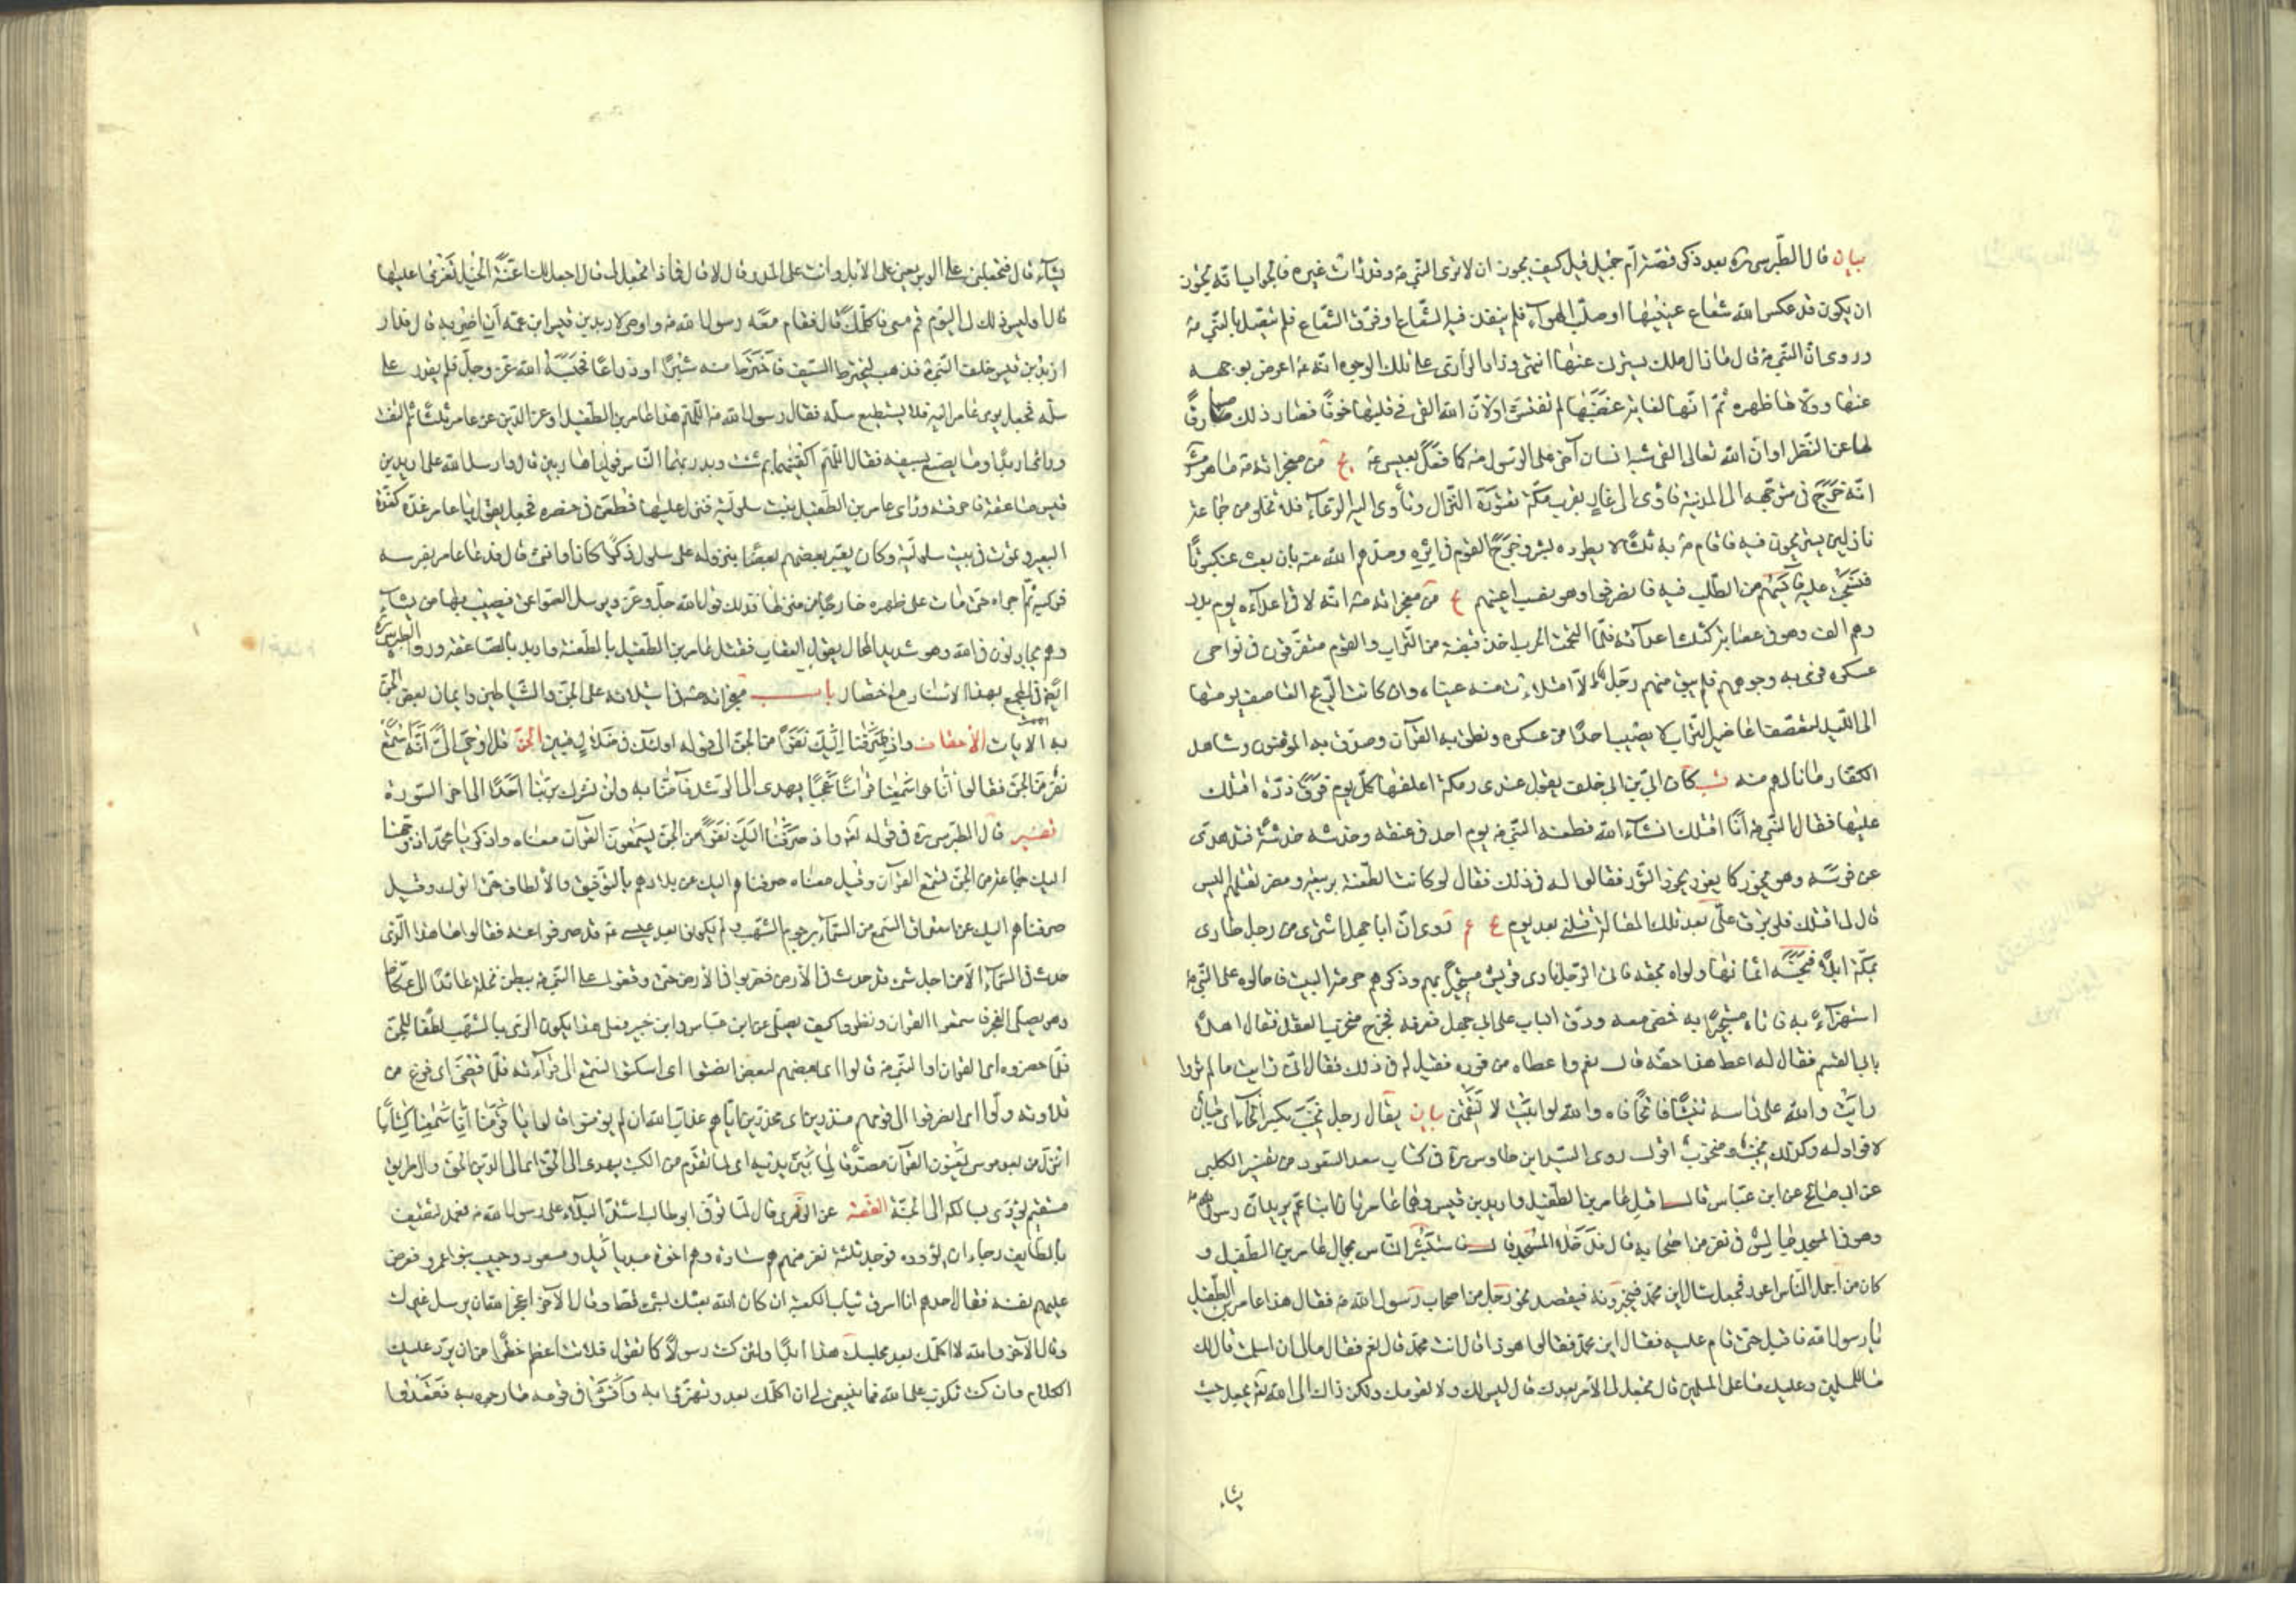 بيان قال الطبرسي ره بعد ذكر قصة ام جميل قيل كيف يجوز ان لا ترى النبي ص وقد رات غيره فالجواب انه يجوز
ان يكون قد عكس الله شعاع عينيها او صلب الهواء فلم ينفذ فيه الشعاع او فرق الشعاع فلم يتصل بالنبي ص
وروى ان النبي ص قال ما زال ملك يسترني عنها انتهى
عنها وولاها ظهره ثم انها لغاية غضبها لم تفتش او لان الله القى في قلبها خوفا فصار ذلك صارفا
لها عن النظر او ان الله تعالى القى شبه انسان آخر على الرسول ص كما فعل بعيسى ع يج من معجزاته ص ما هو مشهور
انه خرج في متوجهه الى المدينة فاوى الى غار بقرب مكة تعتوره النزال وتأوى اليه الرعاء فلا تخلو من جماعة
نازلين يستريحون فيه فاقام ص به ثلثا لا يطوره بشر وخرج القوم في اثره وصدهم الله عنه بان بعث عنكبوتا
فنسجت عليه فآيسهم من الطلب فيه فانصرفوا وهو نصب اعينهم يج من معجزاته ص انه لاقى اعداءه يوم بدر
وهم الف وهو في عصابة كثلث اعدائه فلما التحمت الحرب اخذ قبضة من التراب والقوم متفرقون في نواحي
عسكره فرمى به وجوههم فلم يبق منهم رجل الا امتلأت منه عيناه وان كانت الريح العاصف يومها
الى الليل لتعصف اعاصير التراب لا يصيب احدا من عسكره ونطق به القرآن وصدق به المؤمنون وشاهد
الكفار ما نالهم منه شى كان ابى بن خلف يقول عندى رمكة اعلفها كل يوم فرق ذرة اقتلك
عليها فقال النبي ص انا اقتلك انشاء الله فطعنه النبي ص يوم احد في عنقه وخدشه خدشة فتدهدى
عن فرسه وهو يخور كما يخور الثور فقالوا له في ذلك فقال لو كانت الطعنة بربيعة ومضر لقتلهم اليس
قال لى اقتلك فلو بزق على بعد تلك المقالة قتلنى فمات بعد يوم روى ان ابا جهل اشترى من رجل طارى
بمكة ابلا فبخسه اثمانها ولواه بحقه فاتى الرجل نادى قريش مستجيرا بهم وذكرهم حرمة البيت فاحالوه على النبي ص
استهزاء به فاتاه مستجيرا به فمضى معه ودق الباب على ابى جهل فعرفه فخرج منخوب العقل فقال اهلا
بابا القسم فقال له اعط هذا حقه قال نعم واعطاه من فوره فقيل له في ذلك فقال انى رايت ما لم تروا
رايت والله على راسه تنينا فاتحا فاه والله لو ابيت لالتقمنى بيان يقال رجل نخب بكسر الخاء اى جبان
لا فؤاد له وكذلك نخيب ومنخوب اقول روى السيد ابن طاوس ره في كتاب سعد السعود من تفسير الكلبى
عن ابى صالح عن ابن عباس قال اقبل عامر بن الطفيل واربد بن قيس وهما عامريان ابنا عم يريدان رسول الله ص
وهو في المسجد جالس في نفر من اصحابه قال فدخلا المسجد قال فاستبشر الناس بجمال عامر بن الطفيل و
كان من اجمل الناس اعور فجعل يسأل اين محمد فيخبرونه فيقصد نحو رجل من اصحاب رسول الله ص فقال هذا عامر بن الطفيل
يا رسول الله فاقبل حتى قام عليه فقال اين محمد فقالوا هو ذا قال انت محمد قال نعم فقال ما لى ان اسلمت قال لك
ما للمسلمين وعليك ما على المسلمين قال تجعل لى الامر بعدك قال ليس لك ولا لقومك ولكن ذاك الى الله تعالى يجعله حيث
يشاء
يشاء قال فتجعلنى على الوبر يعنى على الابل وانت على المدر قال لا قال فماذا تجعل لى قال اجعل لك اعنة الخيل تغزو عليها
قال اوليس ذلك لى اليوم قم معى فاكلمك قال فقام معه رسول الله ص واومى لاربد بن قيس ابن عمه ان اضربه قال فدار
اربد بن قيس خلف النبي ص فذهب ليخترط السيف فاخترط منه شبرا او ذراعا فحبسه الله عز وجل فلم يقدر على
سله فجعل يومى عامر اليه فلا يستطيع سله فقال رسول الله ص اللهم هذا عامر بن الطفيل اوعر الدين عن عامر ثلثا ثم التفت
وراى اربد وما يصنع بسيفه فقال اللهم اكفنيهما بم شئت وبدر بهما الناس فوليا هاربين قال وارسل الله على اربد بن
قيس صاعقة فاحرقته وراى عامر بن الطفيل بيت سلولية فنزل عليها فطعن في خنصره فجعل يقول يا عامر غدة كغدة
البعير وموت في بيت سلولية وكان يعير بعضهم بعضا بنزوله على سلول ذكرا كان او انثى قال فدعا عامر بفرسه
فركبه ثم اجراه حتى مات على ظهره خارجا من منزلها فذلك قول الله جل وعز ويرسل الصواعق فيصيب بها من يشاء
وهم يجادلون في الله وهو شديد المحال يقول العقاب فقتل عامر بن الطفيل بالطعنة واربد بالصاعقة وروى الطبرسي ره
ايضا في المجمع بهذا الاسناد مع اختصار باب معجزاته ص في استيلائه على الجن والشياطين وايمان بعض الجن
به الآيات الاحقاف واذ صرفنا اليك نفرا من الجن الى قوله اولئك في ضلال مبين الجن قل اوحى الى انه استمع
نفر من الجن فقالوا انا سمعنا قرآنا عجبا يهدى الى الرشد فآمنا به ولن نشرك بربنا احدا الى اخر السورة
تفسير قال الطبرسي ره في قوله تعالى واذ صرفنا اليك نفرا من الجن يستمعون القرآن معناه واذكر يا محمد اذ وجهنا
اليك جماعة من الجن تستمع القرآن وقيل معناه صرفناهم اليك عن بلادهم بالتوفيق والالطاف حتى اتوك وقيل
صرفناهم اليك عن استراق السمع من السماء برجوم الشهب ولم يكونوا بعد عيسى ع قد صرفوا عنه فقالوا ما هذا الذى
حدث في السماء الا من اجل شئ قد حدث في الارض فضربوا في الارض حتى وقفوا على النبي ص ببطن نخلة عامدا الى عكاظ
وهو يصلى الفجر فاستمعوا القرآن ونظروا كيف يصلى عن ابن عباس وابن جبير فعلى هذا يكون الرمى بالشهب لطفا للجن
فلما حضروه اى القرآن او النبي ص قالوا اى بعضهم لبعض انصتوا اى اسكتوا لنستمع الى قراءته فلما قضى اى فرغ من
تلاوته ولوا اى انصرفوا الى قومهم منذرين اى محذرين اياهم عذاب الله ان لم يؤمنوا قالوا يا قومنا انا سمعنا كتابا
انزل من بعد موسى يعنون القرآن مصدقا لما بين يديه اى لما تقدم من الكتب يهدى الى الحق اى الى الدين الحق والى طريق
مستقيم يؤدى بسالكه الى الجنة القصة عن الزهرى قال لما توفى ابو طالب اشتد البلاء على رسول الله ص فعمد لثقيف
بالطايف رجاء ان يؤووه فوجد ثلثة نفر منهم هم سادة وهم اخوة عبد ياليل ومسعود وحبيب بنو عمرو فعرض
عليهم نفسه فقال احدهم انا اسرق ثياب الكعبة ان كان الله بعثك بشئ قط وقال الآخر اعجز الله ان يرسل غيرك
وقال الآخر والله لا اكلمك بعد مجلسك هذا ابدا ولئن كنت رسولا كما تقول فلانت اعظم خطرا من ان يرد عليك
الكلام وان كنت تكذب على الله فما ينبغى لى ان اكلمك بعد وتهزؤا به وافشوا في قومه ما راجعوه به فقعدوا